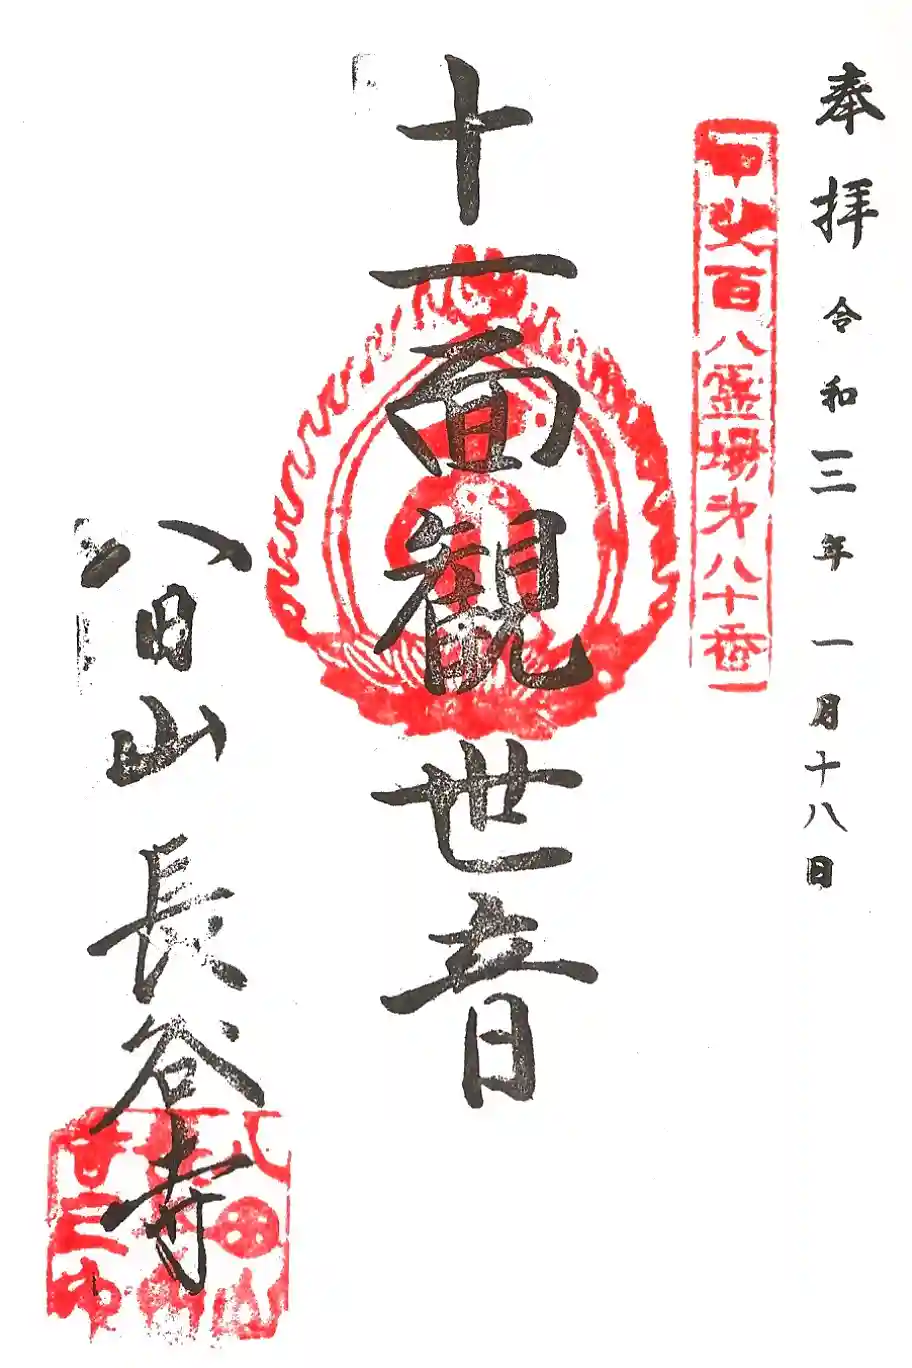 奉拝 令和三年一月十八日
甲斐百八霊場第八十番
十一面観世音
八田山 長谷寺